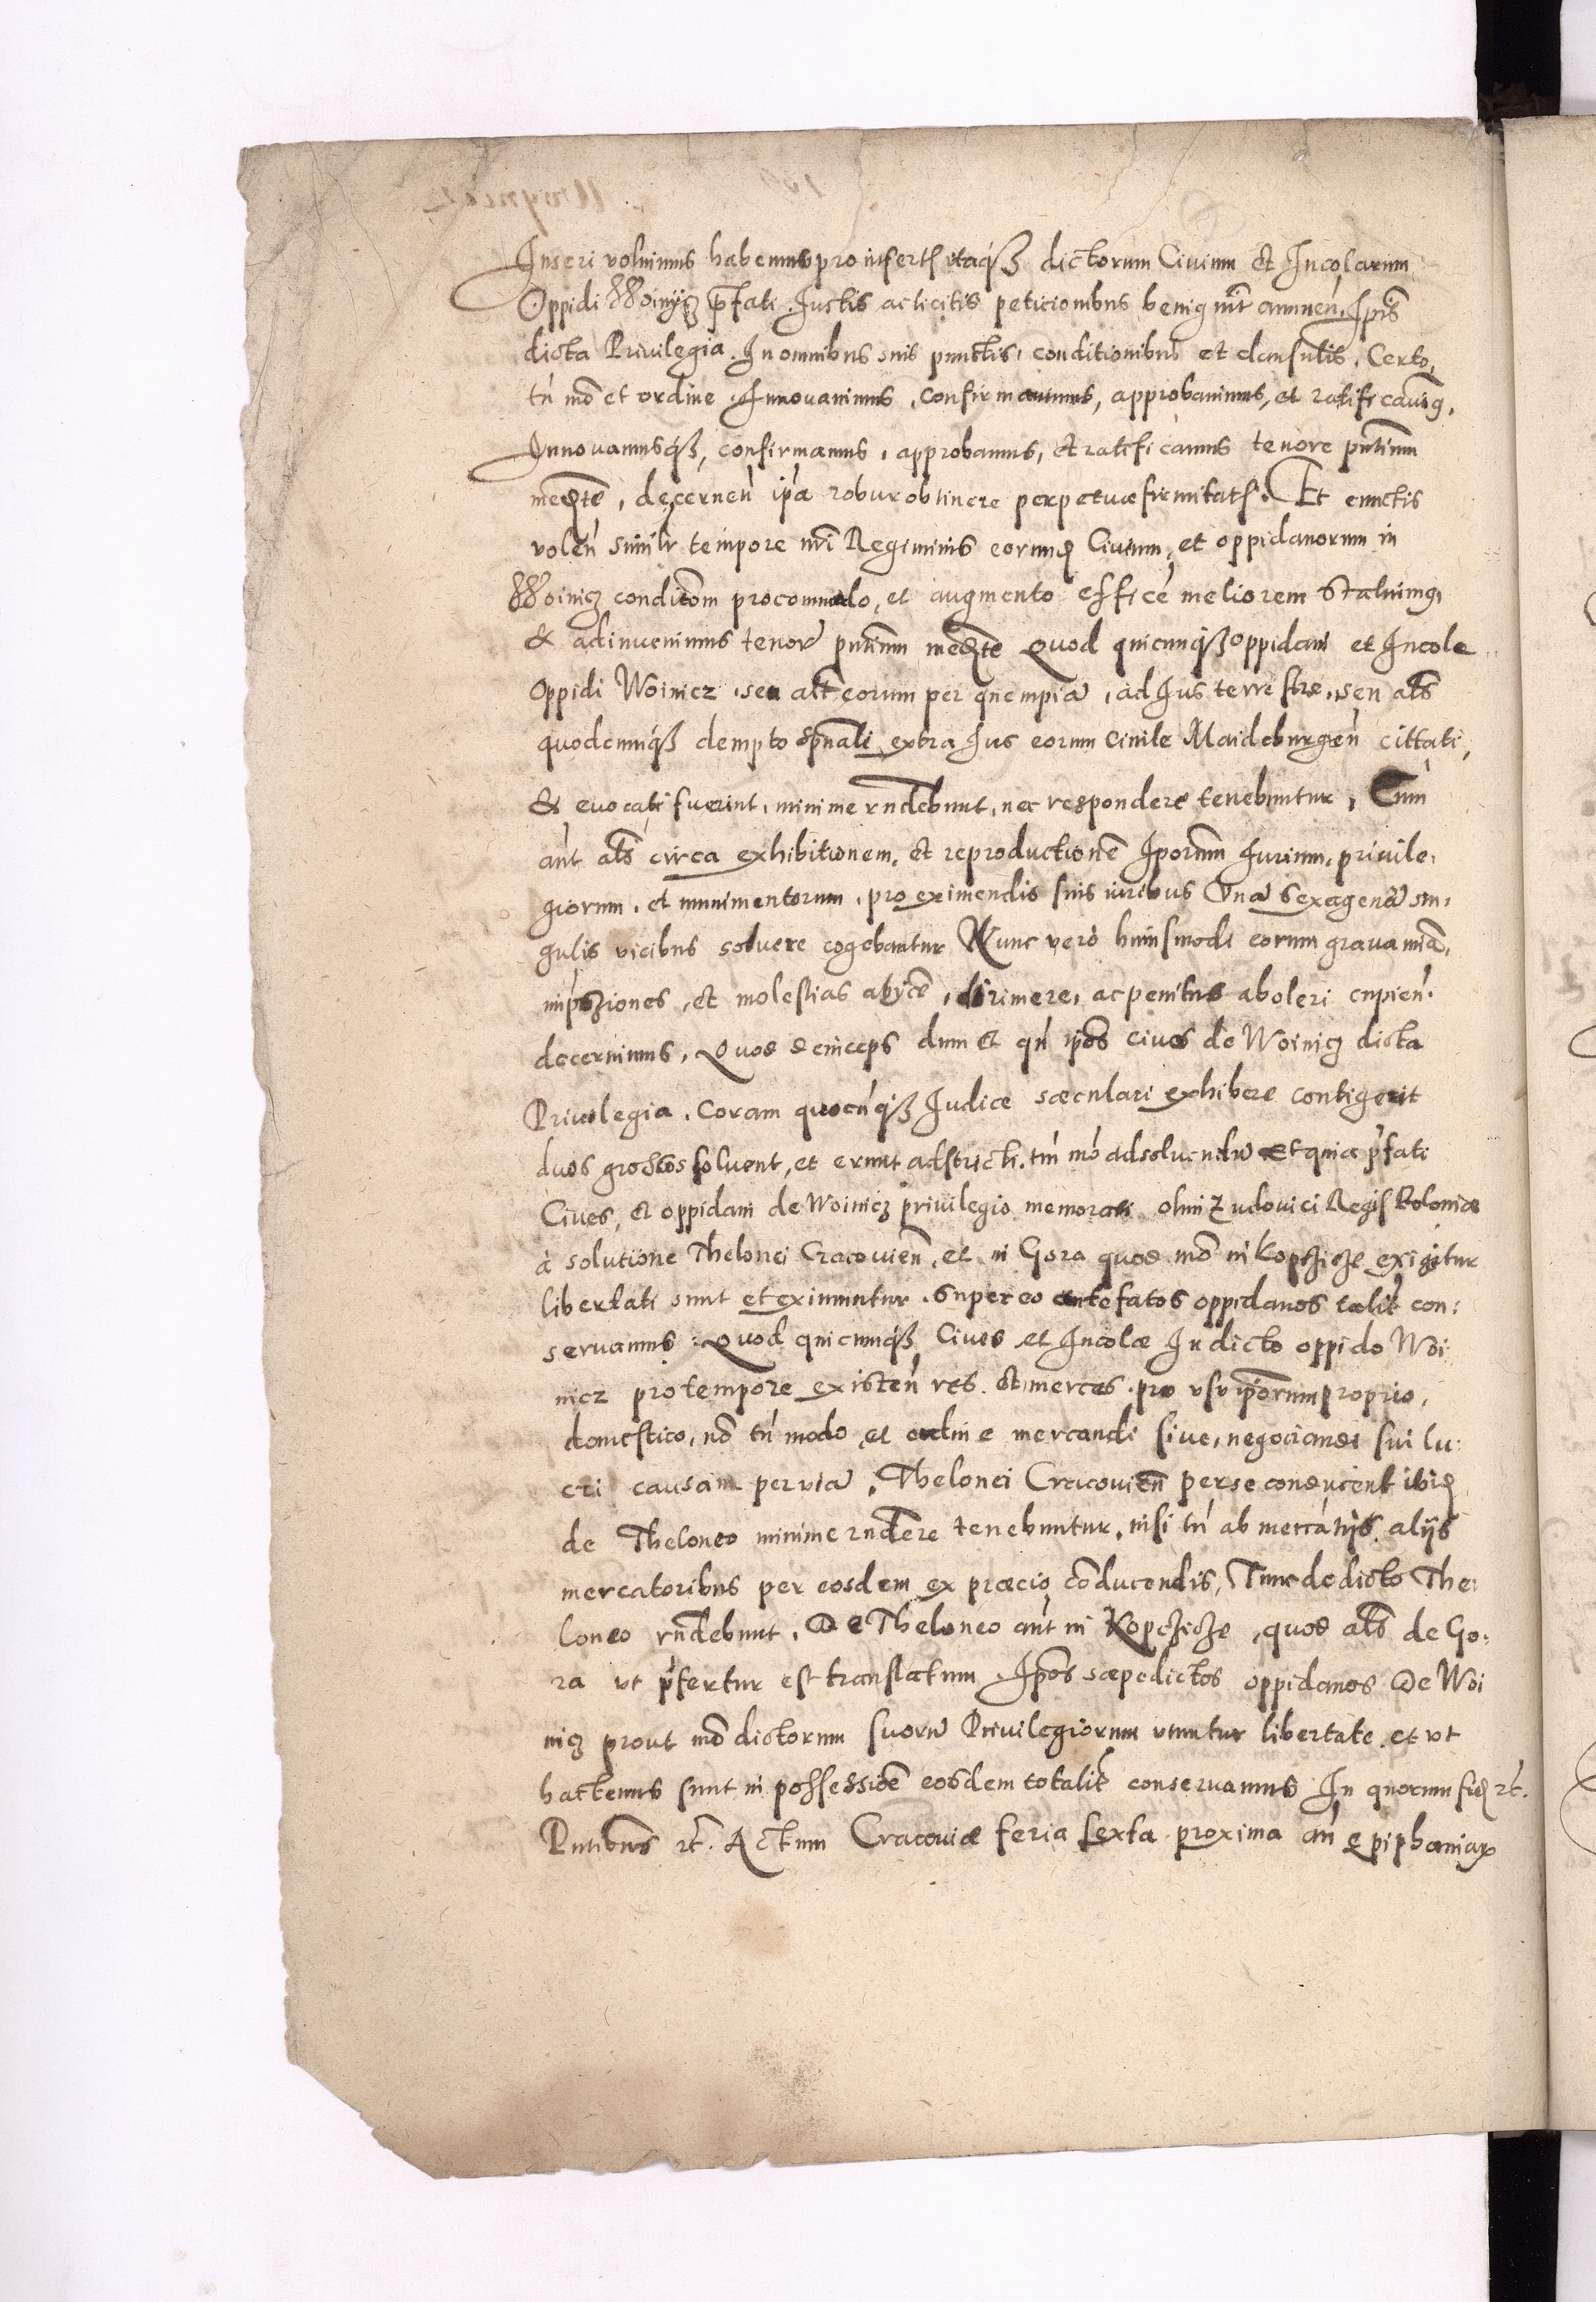 Inseri voluimus habemus pro insertis itaq₃ dictorum Civium et Incolarum
Oppidi Woinijcz p̄fati Iustis ac licitis peticionibus benignitr̄ annuen̄. Ipīs
dicta Privilegia. In omnibus suis punctis, conditionibus et clausulis. Certo,
tn̄ mō et ordine Innovavimus, confirmavimus, approbavimus, et ratificavimꝰ,
Innovamusq₃, confirmamus, approbamus, et ratificamus tenore pn̄tium
medn̄te, decernen̄ ip̄a robur obtinere perpetuæ firmitatis. Et cunctis
volen̄ similr̄ tempore nr̄i Regiminis eorund̄ Civium, et oppidanorum in
Woinicz condicōm pro commodo, et augmento efficē meliorem Statuimꝰ,
& adinvenimus tenorē pn̄tium medn̄te Quod quicunq₃ oppidani et Incole
Oppidi Woinicz, seu altr̄ eorum per quempiā, ad Ius terrestre, seu als̄
quodcunq₃ dempto sp̄uali extra Ius eorum civile Maideburgen̄ cittati,
Et evocati fuerint, minime rn̄debunt, nec respondere tenebuntur, Cum
aūt als̄ circa exhibitionem, et reproductionē Ip̄orum Iurium, privile,
giorum, et munimentorum, pro eximendis suis iuribus Unā Sexagenā sin,
gulis vicibus solvere cogebantur Nunc verò huiusmodi eorum gravamīa,
imp̄osiones, et molestias abijcē, dirimere, ac penitus aboleri cupien̄.
decernimus. Quod deinceps dum et qn̄ ip̄os cives de Woinicz dicta
Privilegia. Coram quocūq₃ Iudice sæculari exhibere contigerit
duos grossos solvent, et erunt adstricti. tm̄ mō ad solvendū Et quia p̄fati
Cives, et oppidani de Woinicz privilegio memorati olim Ludovici Regis Poloniæ
à solutione Thelonei Cracovien̄, et in Gora quod mō in Kopczicze exigitur
libertati sunt et eximuntur. Super eo antefatos oppidanos talitr̄ con:
servamus: Quod quicunq₃ Cives et Incolæ In dicto oppido Woi-
nicz pro tempore existen̄ res et merces. pro usu ip̄orum proprio,
domestico, nō tn̄ modo, et ordine mercandi sive, negociandi sui lu:
cri causam per viā, Thelonei Cracovien̄ per se conducent ibid̄
de Theloneo minime rn̄dere tenebuntur, nisi tn̄ ab mercātijs alijs
mercatoribus per eosdem ex præcio cōducendis, Tunc de dicto The:
loneo rn̄debunt. De Theloneo aūt in Kopczicze, quod als̄ de Go:
ra ut p̄fertur est translatum Ip̄os sæpedictos oppidanos De Woi
nicz prout mō dictorum suorū Privilegiorum utuntur libertate et ut
hactenus sunt in possessiōe eosdem totalitr̄ conservamus In quorum fid̄ ꝛc̄.
Pn̄tibus ꝛc̄. Actum Cracoviæ feria Sexta proxima an̄ epiphaniaꝝ